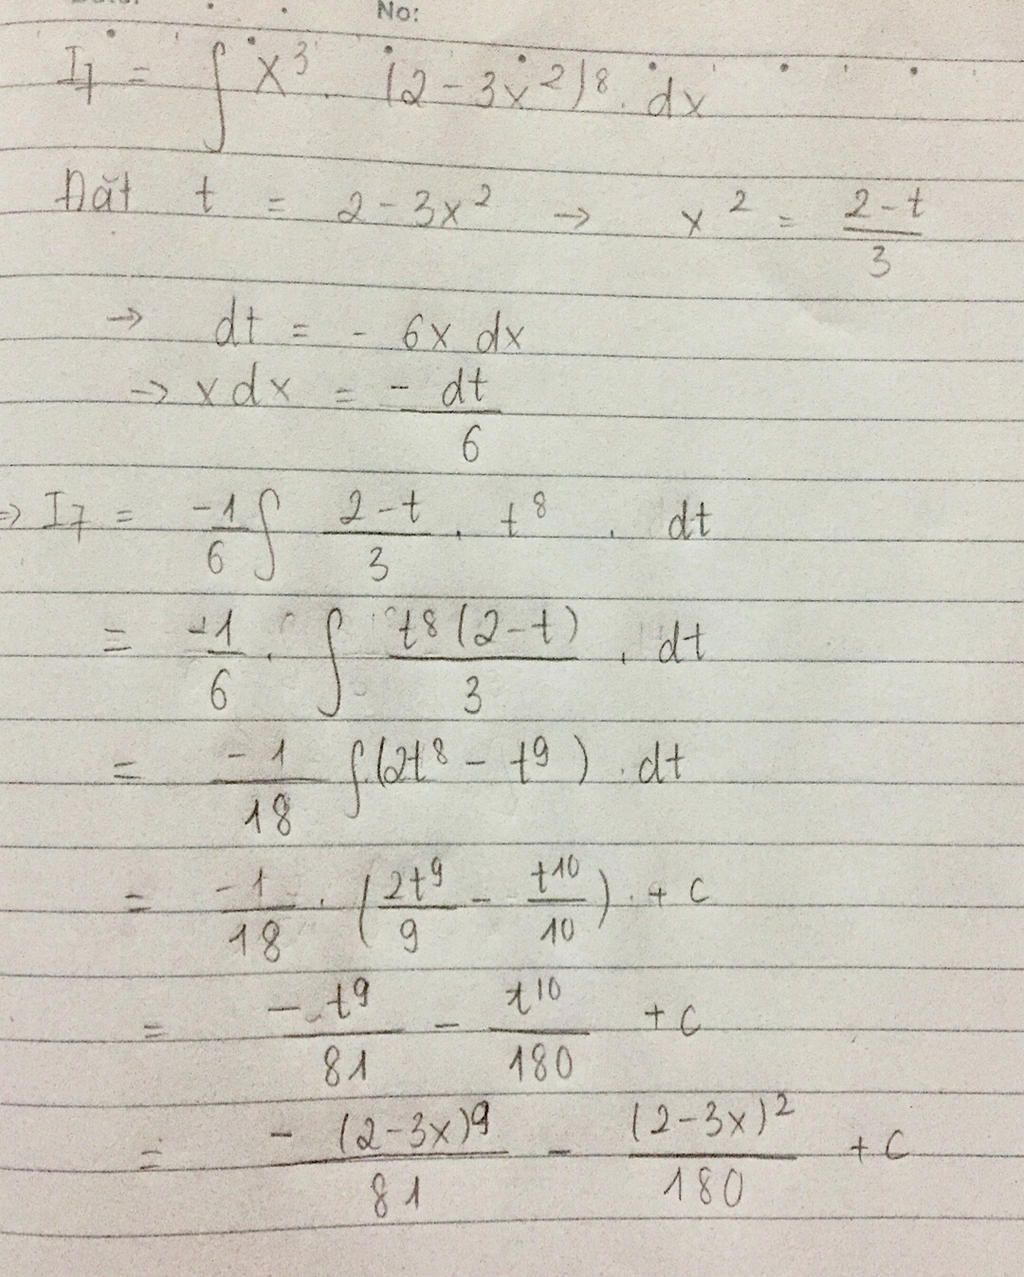 No:
I₇ = ∫ x³ . (2 - 3x²)⁸ . dx
Đặt t = 2 - 3x² → x² = (2 - t)/3
→ dt = - 6x dx
→ xdx = - dt/6
⇒ I₇ = -1/6 ∫ (2 - t)/3 . t⁸ . dt
= -1/6 . ∫ t⁸(2 - t)/3 . dt
= -1/18 ∫(2t⁸ - t⁹) . dt
= -1/18 . (2t⁹/9 - t¹⁰/10) . + C
= - t⁹/81 - t¹⁰/180 + C
= - (2 - 3x)⁹/81 - (2 - 3x)²/180 + C